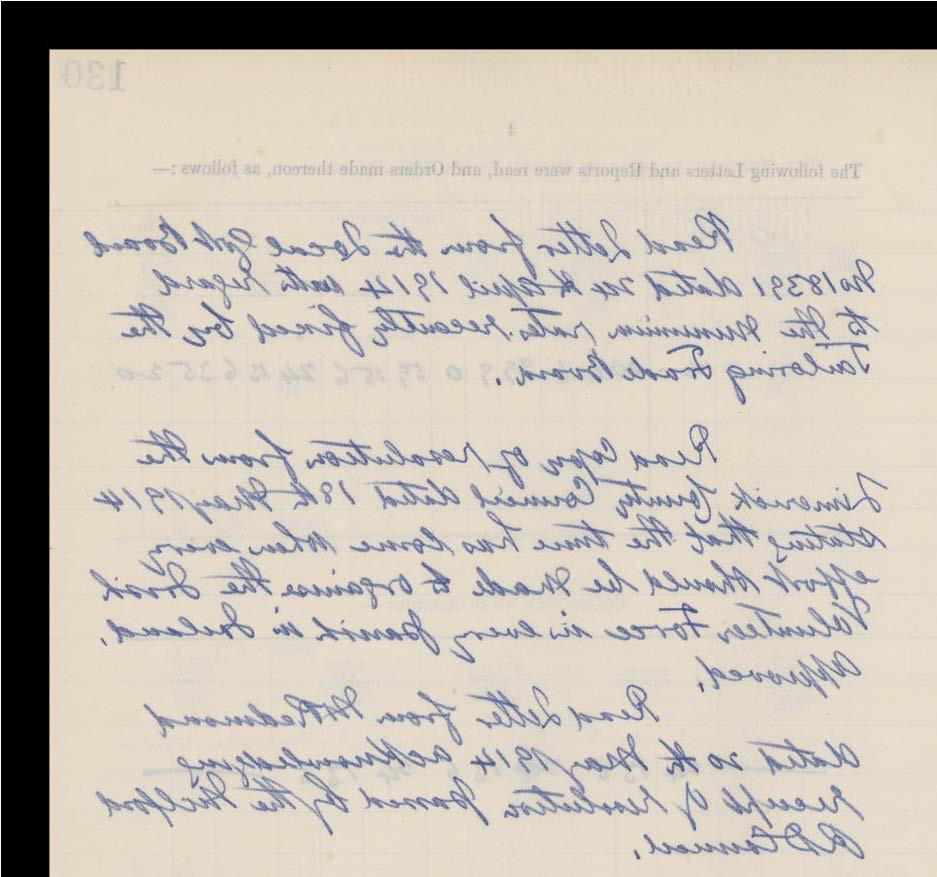 130
4
The following Letters and Reports were read, and Orders made thereon, as follows :—
Read Letter from the Local Govt Board
No 18391 dated 24th April 1914 with regard
to the minimum rates recently fixed by the
Tailoring Trade Board.
Read Copy of resolution from the
Limerick County Council dated 18th May 1914
stating that the time has come when every
effort should be made to organise the Irish
Volunteer Force in every Parish in Ireland.
Approved.
Read Letter from Mr Redmond
dated 20th May 1914 acknowledging
receipt of resolution passed by the Milford
R D Council.